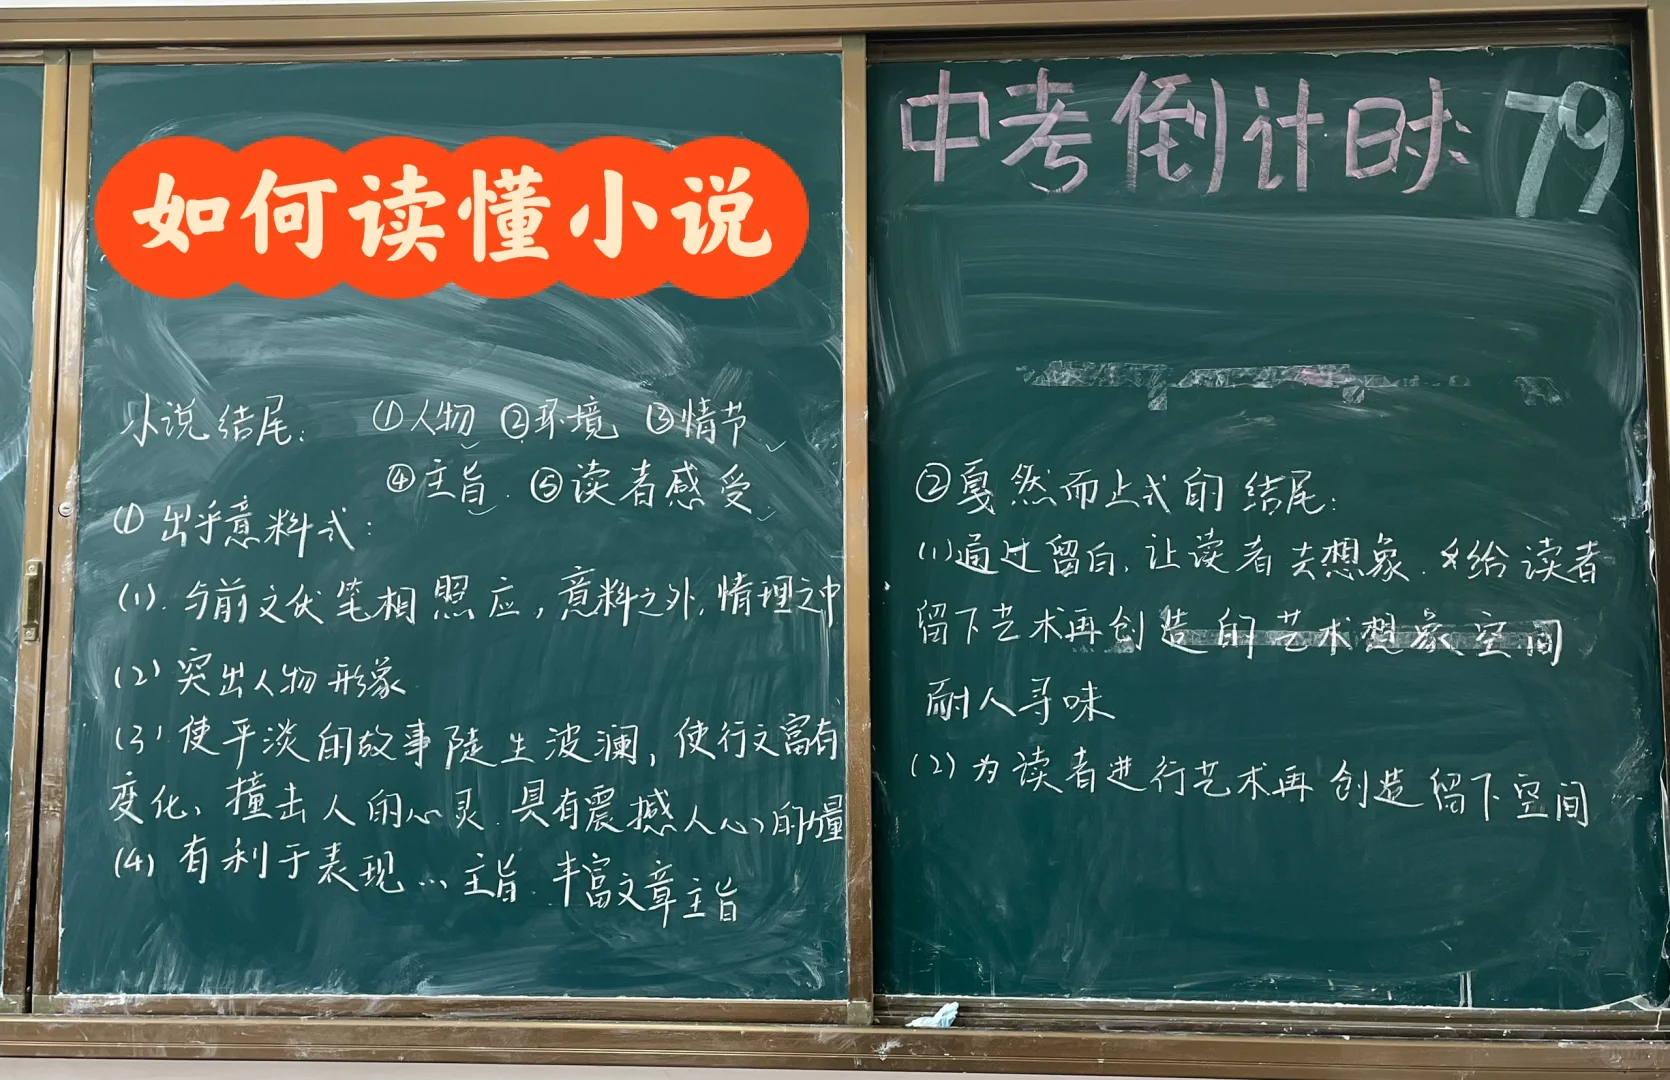 如何读懂小说
小说结尾: ①人物 ②环境 ③情节
④主旨. ⑤读者感受
① 出乎意料式:
(1). 与前文伏笔相照应, 意料之外, 情理之中
(2) 突出人物形象
(3). 使平淡的故事陡生波澜, 使行文富有
变化, 撞击人的心灵. 具有震撼人心的力量
(4) 有利于表现… 主旨. 丰富文章主旨
中考倒计时: 79
②戛然而止式的结尾:
(1)通过留白, 让读者去想象. 给读者
留下艺术再创造的艺术想象空间
耐人寻味
(2) 为读者进行艺术再创造留下空间